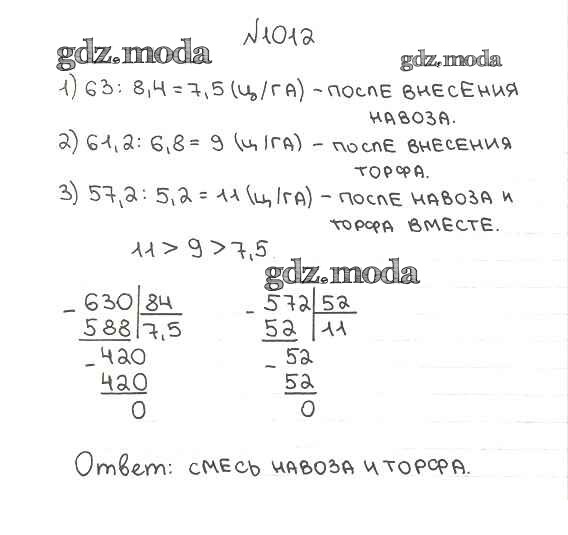 №1012
gdz.moda gdz.moda
1) 63 : 8,4 = 7,5 (ц/га) – после внесения
навоза.
2) 61,2 : 6,8 = 9 (ц/га) – после внесения
торфа.
3) 57,2 : 5,2 = 11 (ц/га) – после навоза и
торфа вместе.
11 > 9 > 7,5
gdz.moda
- 630 | 84 - 572 | 52
588 | 7,5 52 | 11
- 420 - 52
420 52
0 0
Ответ: смесь навоза и торфа.